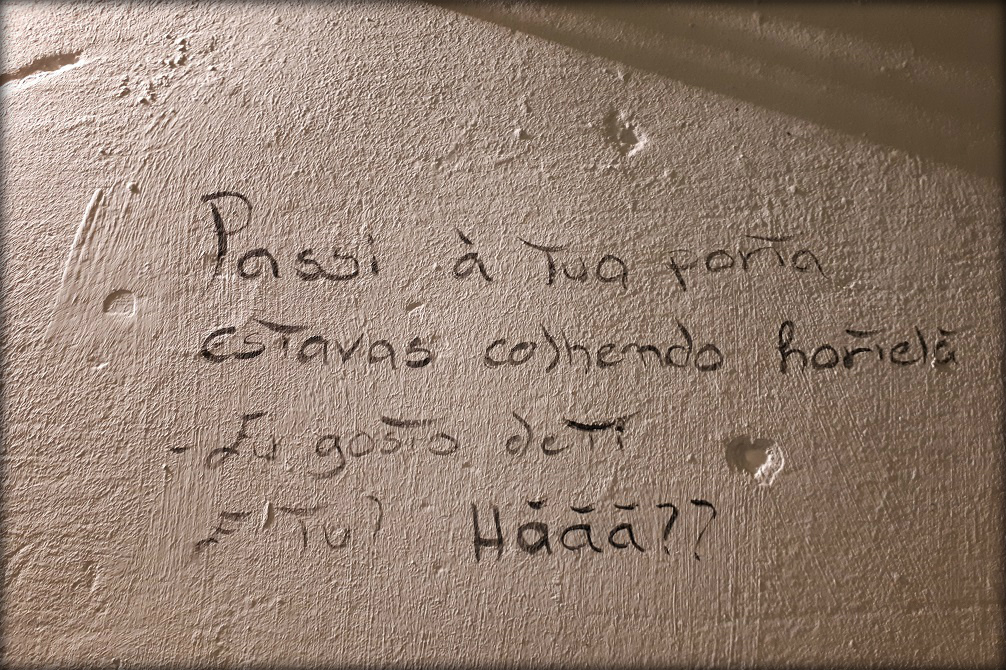 Passi à Tua porta
estavas colhendo hortelã
- Eu gosto de Ti
E Tu? Hããã??